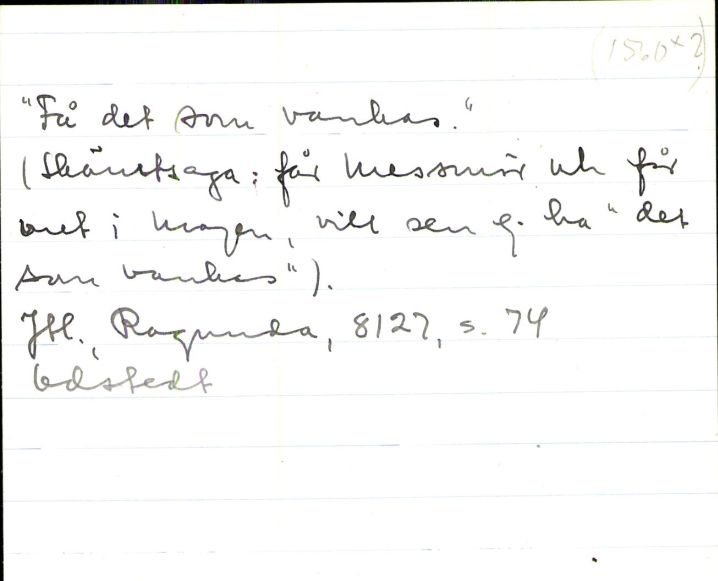 (1560* ?)
"Få det som vankas."
(Skämtsaga: får messmör och får
ont i magen, vill sen ej ha "det
som vankas").
Jtl., Ragunda, 8127, s. 74
Edstedt